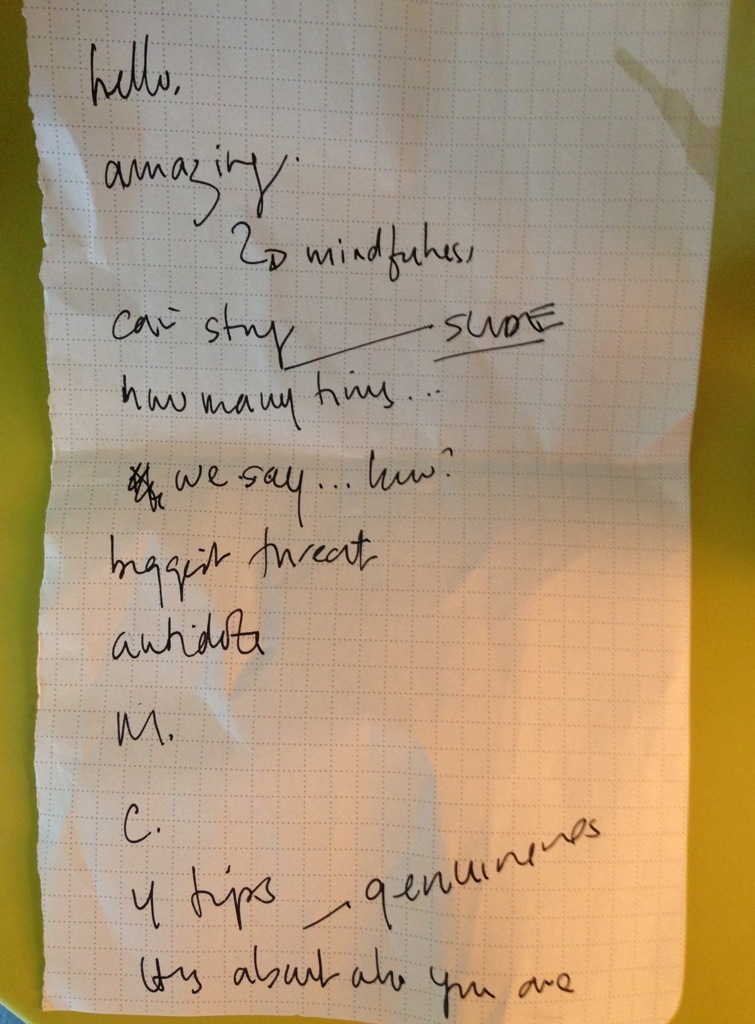 hello.
amazing.
mindfulness
car story — SLIDE
how many times...
we say... how?
biggest threat
antidote
M.
C.
4 tips – genuineness
its about who you are